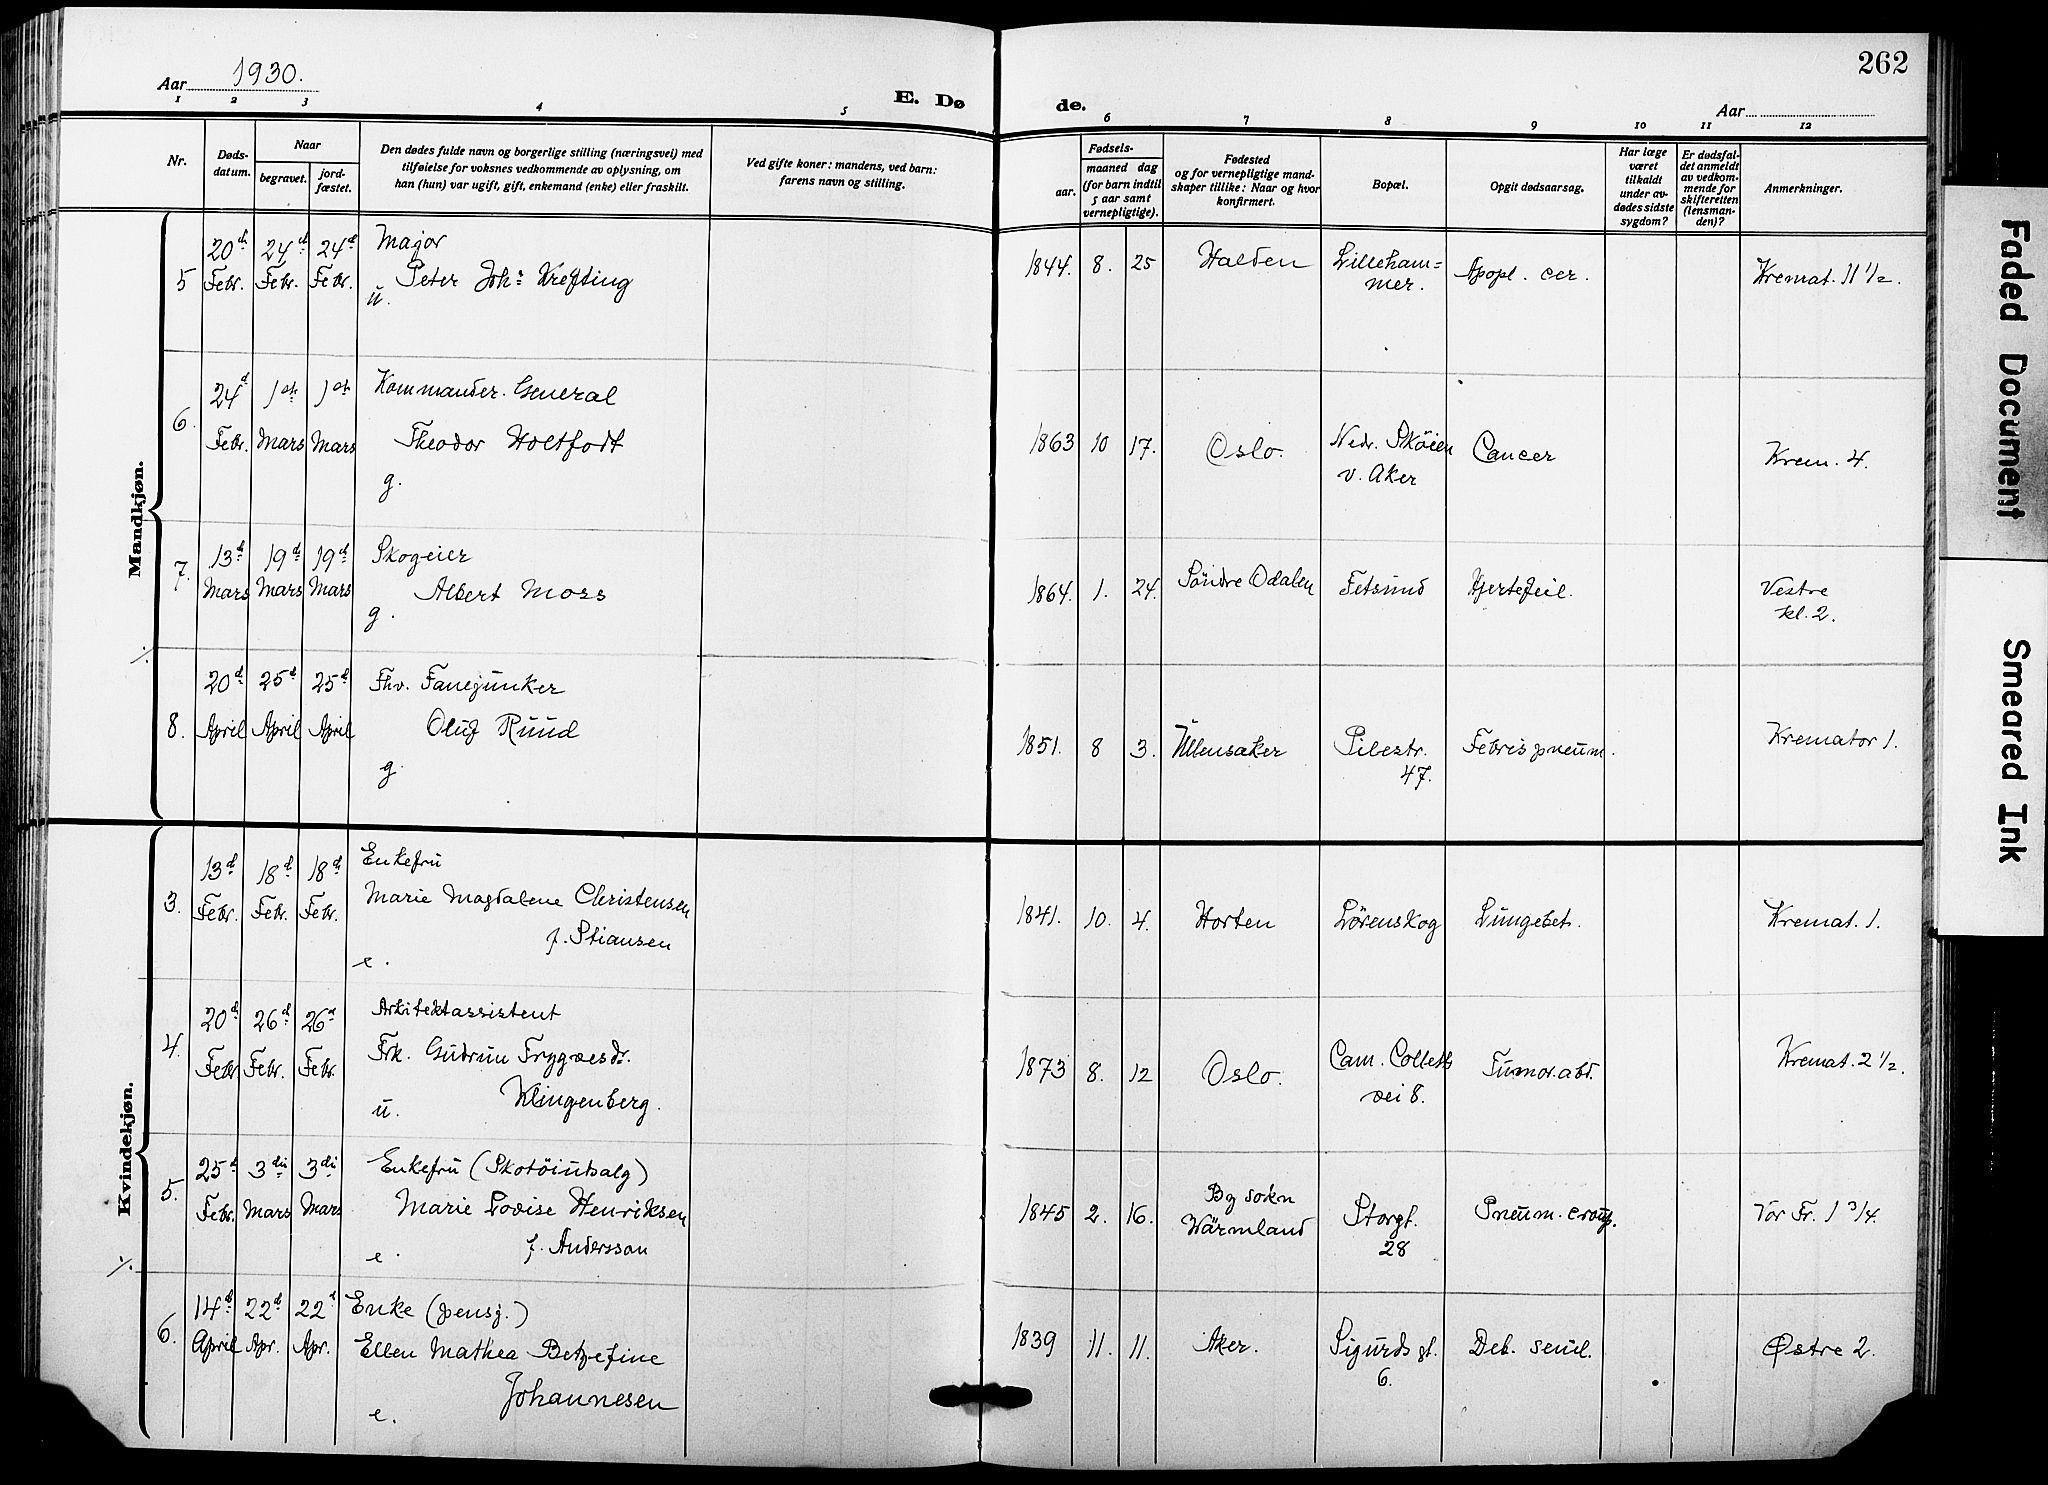 Aar 1930.
E. Døde.
262
Aar
1 2 3 4 5 6 7 8 9 10 11 12
Nr.
Døds-
datum.
Naar
begravet.
jord-
fæstet.
Den dødes fulde navn og borgerlige stilling (næringsvei) med
tilføielse for voksnes vedkommende av oplysning, om
han (hun) var ugift, gift, enkemand (enke) eller fraskilt.
Ved gifte koner: mandens, ved barn:
farens navn og stilling.
Fødsels-
aar.
maaned dag
(for barn indtil
5 aar samt
vernepligtige).
Fødested
og for vernepligtige mand-
skaper tillike: Naar og hvor
konfirmert.
Bopæl.
Opgit dødsaarsag.
Har læge
været
tilkaldt
under av-
dødes sidste
sygdom?
Er dødsfal-
det anmeldt
av vedkom-
mende for
skifteretten
(lensman-
den)?
Anmerkninger.
Mandkjøn.
5
20d
Febr.
24d
Febr.
24d
Febr.
Major
Peter Johs Krefting
u.
1844. 8. 25
Halden
Lilleham=
mer.
Apopl. cer.
Kremat. 11 1/2.
6.
24d
Febr.
1st
Mars
1st
Mars
Kommander. General
Theodor Holtfodt
g.
1863 10 17.
Oslo.
Nedr. Skøien
v. Aker
Cancer
Krem. 4.
7.
13d
Mars
19d
Mars
19d
Mars
Skogeier
Albert Moss
g.
1864. 1. 24.
Söndre Odalen
Fetsund
Hjertefeil.
Vestre
kl. 2.
8.
20d
April
25d
April
25d
April
Fhv. Fanejunker
Oluf Ruud
g.
1851. 8 3.
Ullensaker
Pilestr.
47.
Febris pneum.
Kremator 1.
Kvindekjøn.
3.
13d
Febr.
18d
Febr.
18d
Febr.
Enkefru
Marie Magdalene Christensen
f. Stiansen
e.
1841. 10. 4.
Horten
Lörenskog
Lungebet.
Kremat. 1.
4.
20d
Febr
26d
Febr.
26d
Febr.
Arkitektassistent
Frk. Gudrun Tryggvesdr.
Klingenberg.
u.
1873 8. 12
Oslo.
Cam. Colletts
vei 8.
Tumor. abd.
Kremat. 2 1/2.
5.
25d
Febr.
3di
Mars
3di
Mars
Enkefru (Skotöiutsalg)
Marie Lovise Henriksen
f. Andersson
e.
1845 2. 16.
By sokn
Wärmland
Storgt.
28
Pneum. croup.
Vor Fr. 1 3/4.
6.
14d
April
22d
Apr.
22d
Apr.
Enke (pensj.)
Ellen Mathea Betzefine
Johannesen
e.
1839 11. 11.
Aker.
Sigurds gt.
6.
Deb. senil.
Østre 2.
Faded Document
Smeared Ink